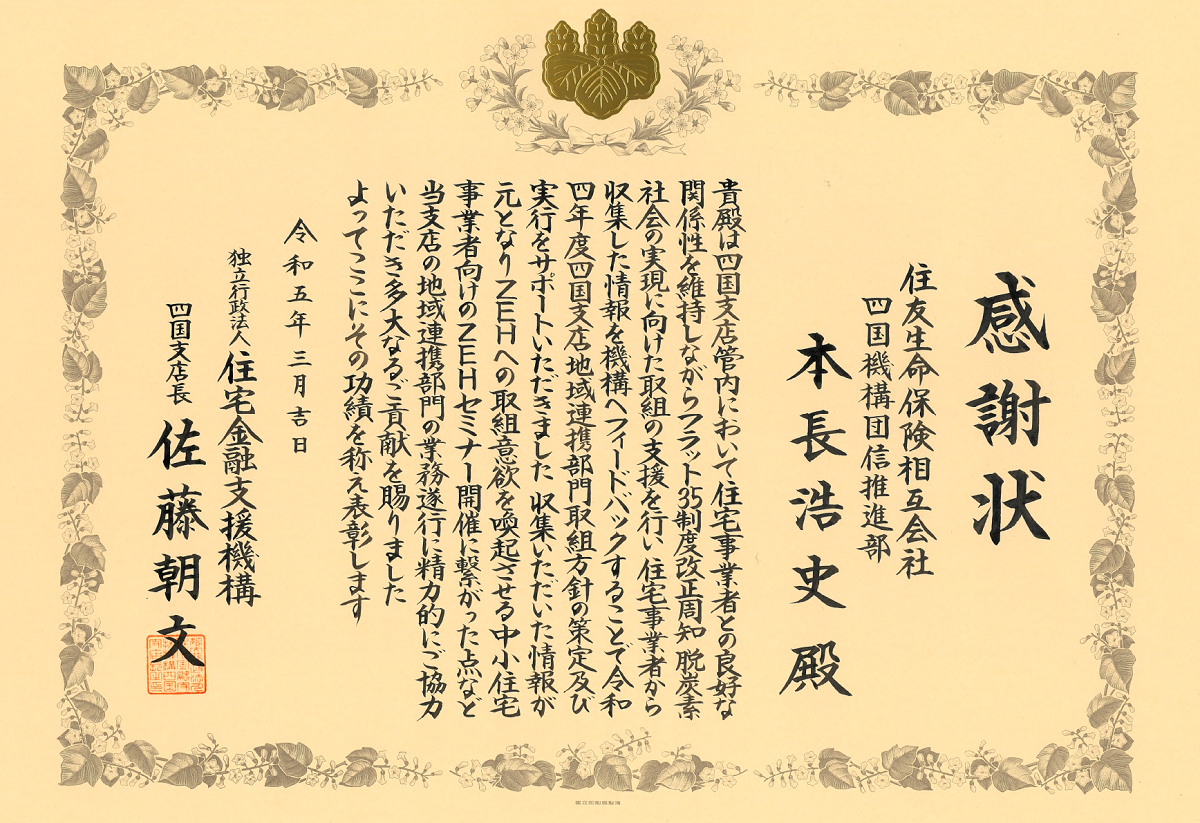 感謝状
住友生命保険相互会社
四国機構団信推進部
本長浩史殿
貴殿は四国支店管内において住宅事業者との良好な
関係性を維持しながらフラット35制度改正周知 脱炭素
社会の実現に向けた取組の支援を行い 住宅事業者から
収集した情報を機構へフィードバックすることで令和
四年度四国支店地域連携部門取組方針の策定及び
実行をサポートいただきました 収集いただいた情報が
元となりZEHへの取組意欲を喚起させる中小住宅
事業者向けのZEHセミナー開催に繋がった点など
当支店の地域連携部門の業務遂行に精力的にご協力
いただき多大なるご貢献を賜りました
よってここにその功績を称え表彰します
令和五年三月吉日
独立行政法人 住宅金融支援機構
四国支店長 佐藤朝文